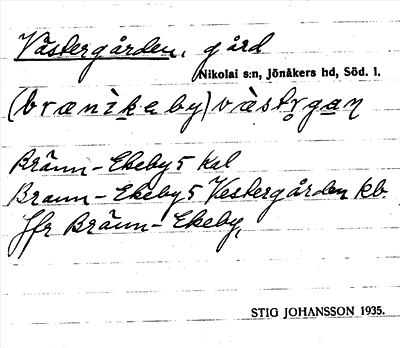 Västergården, gård
Nikolai s:n, Jönåkers hd, Söd. l.
(brænìkeby) vàstrgaṇ
Bränn-Ekeby 5 ksl
Braun-Ekeby 5 Vestergården kb.
Jfr Bränn-Ekeby,
STIG JOHANSSON 1935.